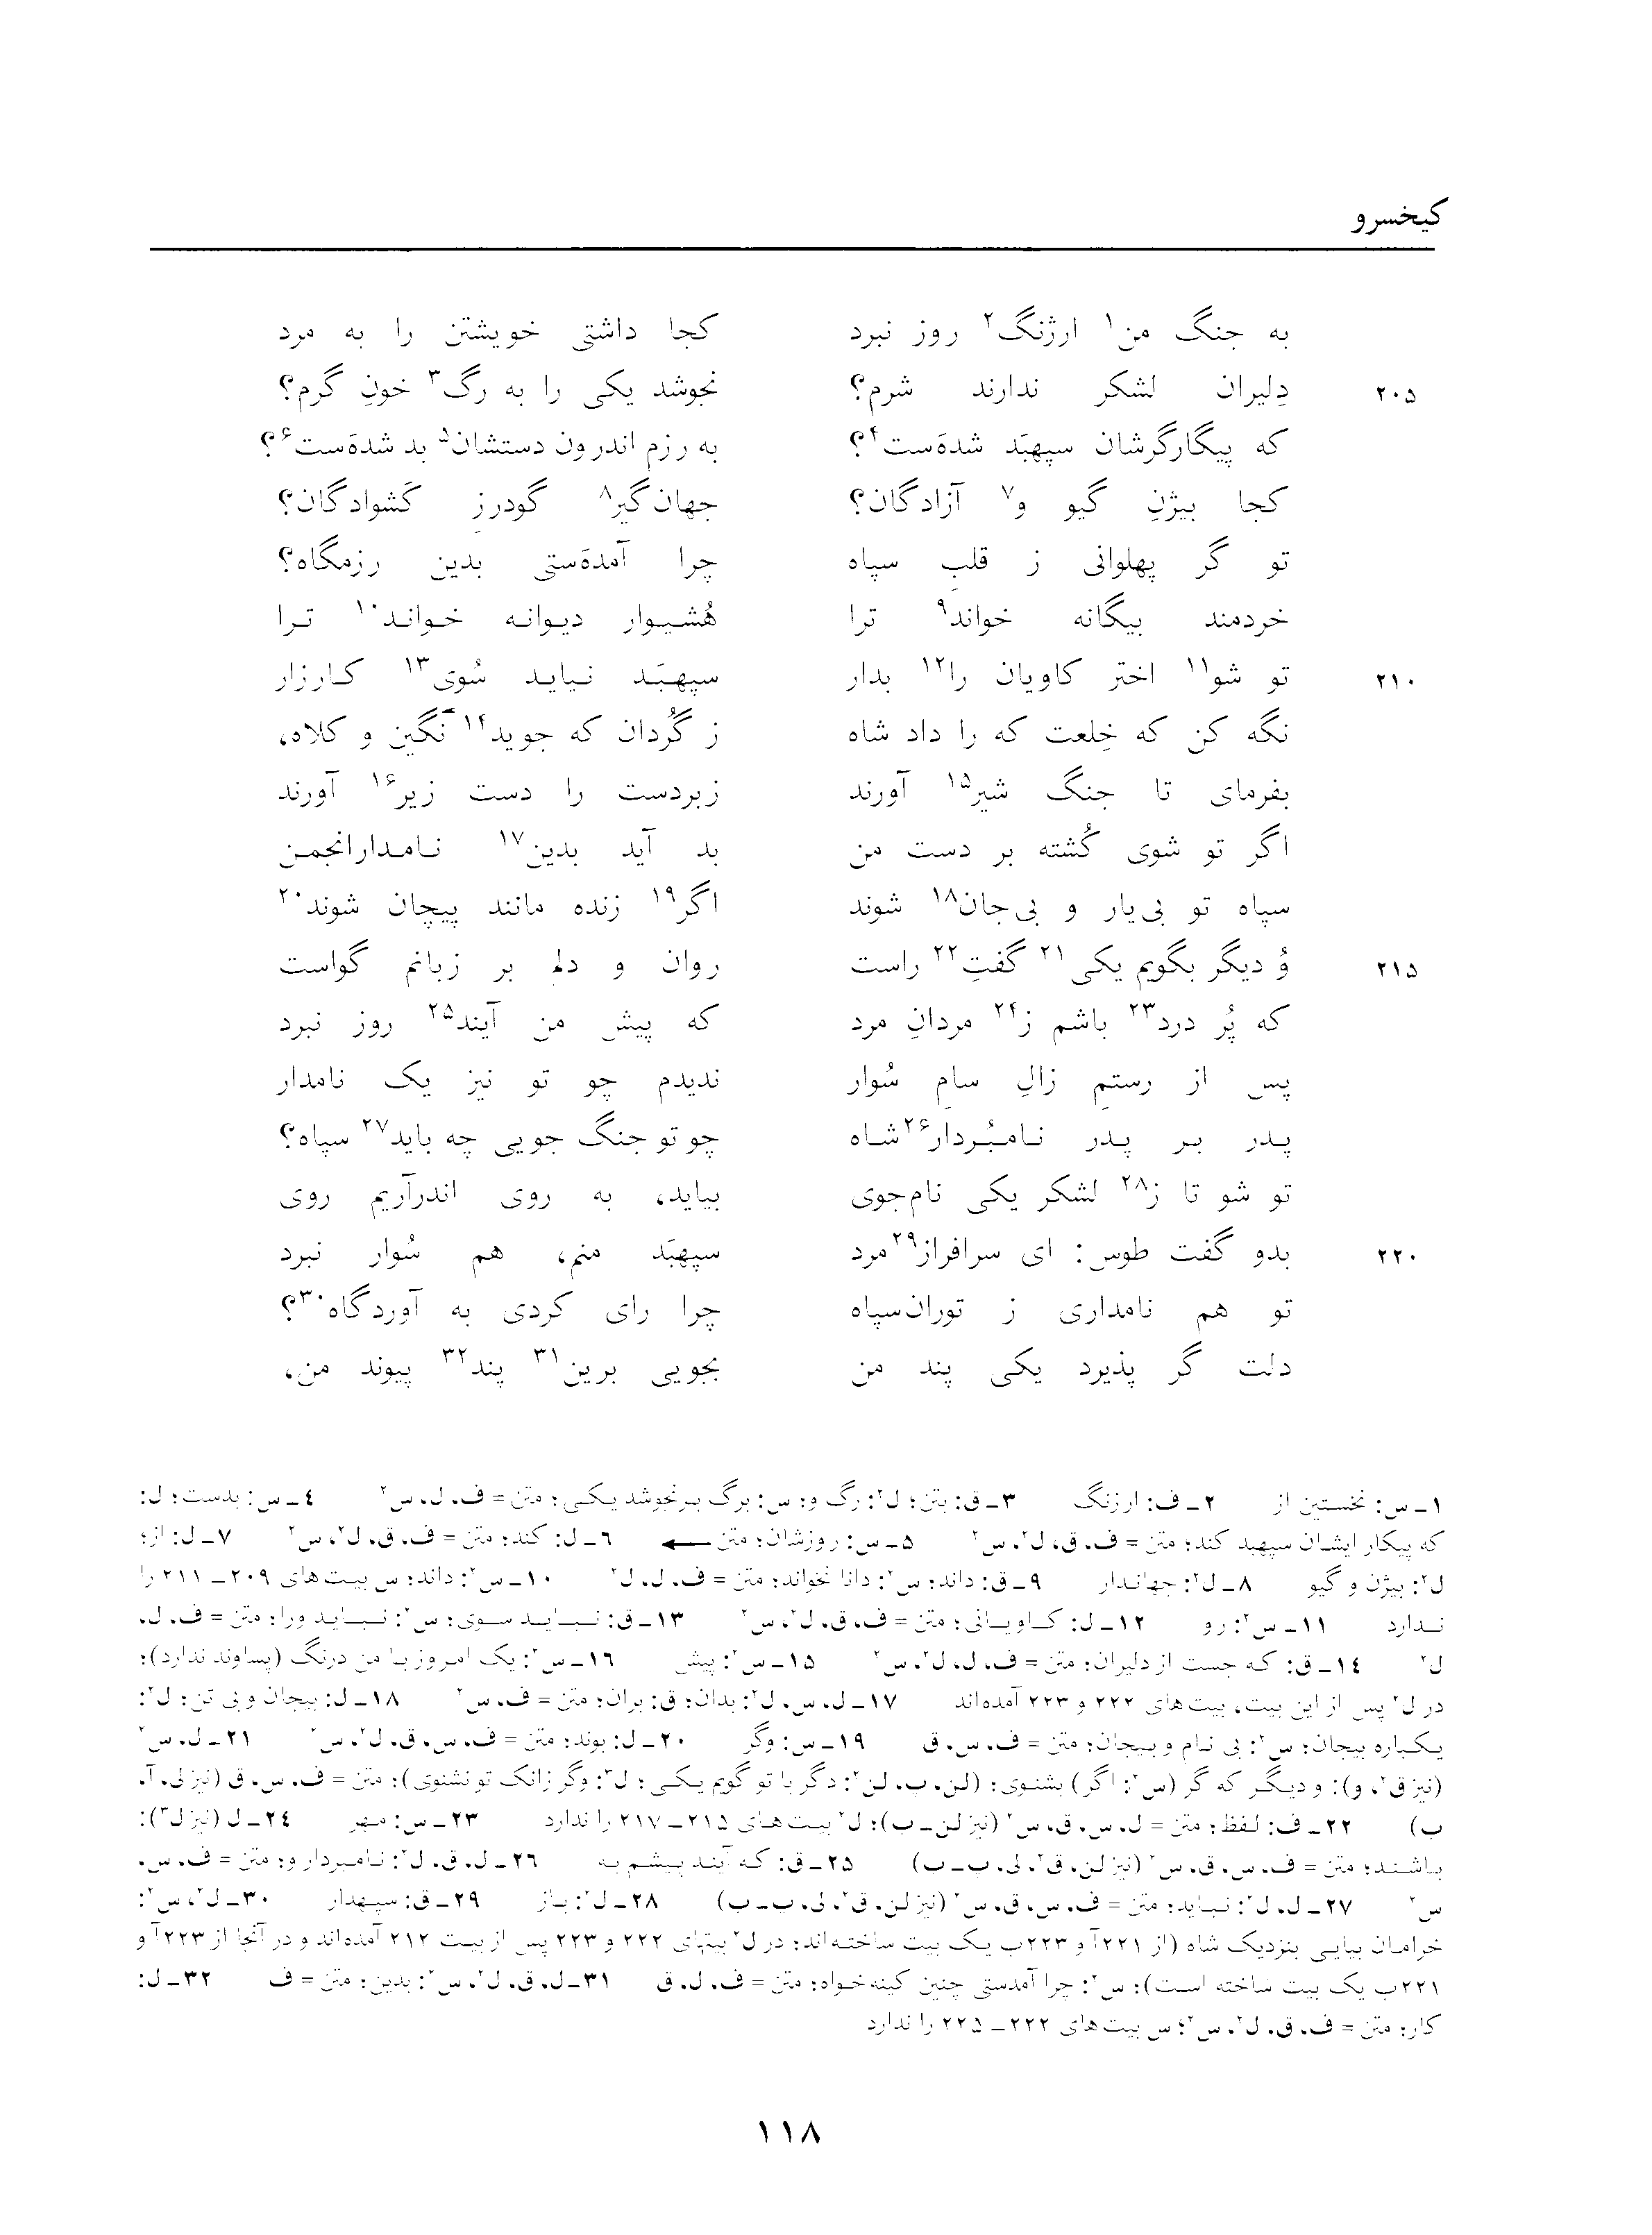 کیخسرو
به جنگ من۱ ارژنگ۲ روز نبرد کجا داشتی خویشتن را به مرد
۲۰۵ دِلیران لشکر ندارند شرم؟ نجوشد یکی را به رگ۳ خونِ گرم؟
که پیگارگرشان سپهبَد شده‌ست۴؟ به رزم اندرون دستشان۵ بد شده‌ست۶؟
کجا بیژنِ گیو و۷ آزادگان؟ جهان‌گیر۸ گودرزِ کَشوادگان؟
تو گر پهلوانی ز قلبِ سپاه چرا آمده‌ستی بدین رزمگاه؟
خردمند بیگانه خواند۹ ترا هُشیوار دیوانه خواند۱۰ ترا
۲۱۰ تو شو۱۱ اختر کاویان را۱۲ بدار سپهبَد نیاید سُوی۱۳ کارزار
نگه کن که خِلعت که را داد شاه ز گُردان که جوید۱۴ نگین و کلاه،
بفرمای تا جنگ شیر۱۵ آورند زبردست را دست زیر۱۶ آورند
اگر تو شوی کُشته بر دست من بد آید بدین۱۷ نامدارانجمن
سپاه تو بی‌یار و بی‌جان۱۸ شوند اگر۱۹ زنده مانند پیچان شوند۲۰
۲۱۵ وُ دیگر بگویم یکی۲۱ گفتِ۲۲ راست روان و دلم بر زبانم گواست
که پُر درد۲۳ باشم ز۲۴ مردانِ مرد که پیش من آیند۲۵ روز نبرد
پس از رستمِ زالِ سامِ سُوار ندیدم چو تو نیز یک نامدار
پدر بر پدر نامبُردار۲۶ شاه چو تو جنگ جویی چه باید۲۷ سپاه؟
تو شو تا ز۲۸ لشکر یکی نام‌جوی بیاید، به روی اندرآریم روی
۲۲۰ بدو گفت طوس: ای سرافراز۲۹ مرد سپهبَد منم، هم سُوار نبرد
تو هم نامداری ز توران‌سپاه چرا رای کردی به آوردگاه۳۰؟
دلت گر پذیرد یکی پند من بجویی برین۳۱ پند۳۲ پیوند من،
۱ــ س: نخستین از ۲ــ ف: ارزنگ ۳ــ ق: بتن؛ ل۲: رگ و؛ س: برگ برنجوشد یکی؛ متن = ف، ل، س۲ ۴ــ س: بدست؛ ل:
که پیکار ایشان سپهبد کند؛ متن = ف، ق، ل۲، س۲ ۵ــ س: روزشان؛ متن ← ۶ــ ل: کند؛ متن = ف، ق، ل۲، س۲ ۷ــ ل: از؛
ل۲: بیژن و گیو ۸ــ ل۲: جهاندار ۹ــ ق: داند؛ س۲: دانا نخواند؛ متن = ف، ل، ل۲ ۱۰ــ س۲: داند؛ س بیت‌های ۲۰۹ــ ۲۱۱ را
ندارد ۱۱ــ س۲: رو ۱۲ــ ل: کاویانی؛ متن = ف، ق، ل۲، س۲ ۱۳ــ ق: نباید سوی؛ س۲: نباید ورا؛ متن = ف، ل،
ل۲ ۱۴ــ ق: که جست از دلیران؛ متن = ف، ل، ل۲، س۲ ۱۵ــ س۲: پیش ۱۶ــ س۲: یک امروز با من درنگ (پساوند ندارد)؛
در ل۲ پس از این بیت، بیت‌های ۲۲۲ و ۲۲۳ آمده‌اند ۱۷ــ ل، س، ل۲: بدان؛ ق: بران؛ متن = ف، س۲ ۱۸ــ ل: بیجان و بی تن؛ ل۲:
یکباره بیجان؛ س۲: بی نام و بیجان؛ متن = ف، س، ق ۱۹ــ س: وگر ۲۰ــ ل: بوند؛ متن = ف، س، ق، ل۲، س۲ ۲۱ــ ل، س۲
(نیز ق۲، و): و دیگر که گر (س۲: اگر) بشنوی؛ (لن، پ، لن۲: دگر با تو گویم یکی؛ ل۳: وگر زانک تو نشنوی)؛ متن = ف، س، ق (نیز لی، آ،
ب) ۲۲ــ ف: لفظ؛ متن = ل، س، ق، س۲ (نیز لن ــ ب)؛ ل۲ بیت‌های ۲۱۵ــ ۲۱۷ را ندارد ۲۳ــ س: مهر ۲۴ــ ل (نیز ل۳):
باشند؛ متن = ف، س، ق، س۲ (نیز لن، ق۲، لی، پ ــ ب) ۲۵ــ ق: که آیند پیشم به ۲۶ــ ل، ق، ل۲: نامبردار و؛ متن = ف، س،
س۲ ۲۷ــ ل، ل۲: نباید؛ متن = ف، س، ق، س۲ (نیز لن، ق۲، لی، پ ــ ب) ۲۸ــ ل۲: باز ۲۹ــ ق: سپهدار ۳۰ــ ل۲، س۲:
خرامان بیایی بنزدیک شاه (از ۲۲۱آ و ۲۲۳ب یک بیت ساخته‌اند؛ در ل۲ بیتهای ۲۲۲ و ۲۲۳ پس از بیت ۲۱۲ آمده‌اند و در آنجا از ۲۲۳آ و
۲۲۱ب یک بیت ساخته است)؛ س۲: چرا آمدستی چنین کینه‌خواه؛ متن = ف، ل، ق ۳۱ــ ل، ق، ل۲، س۲: بدین؛ متن = ف ۳۲ــ ل:
کار؛ متن = ف، ق، ل۲، س۲؛ س بیت‌های ۲۲۲ــ ۲۲۵ را ندارد
۱۱۸